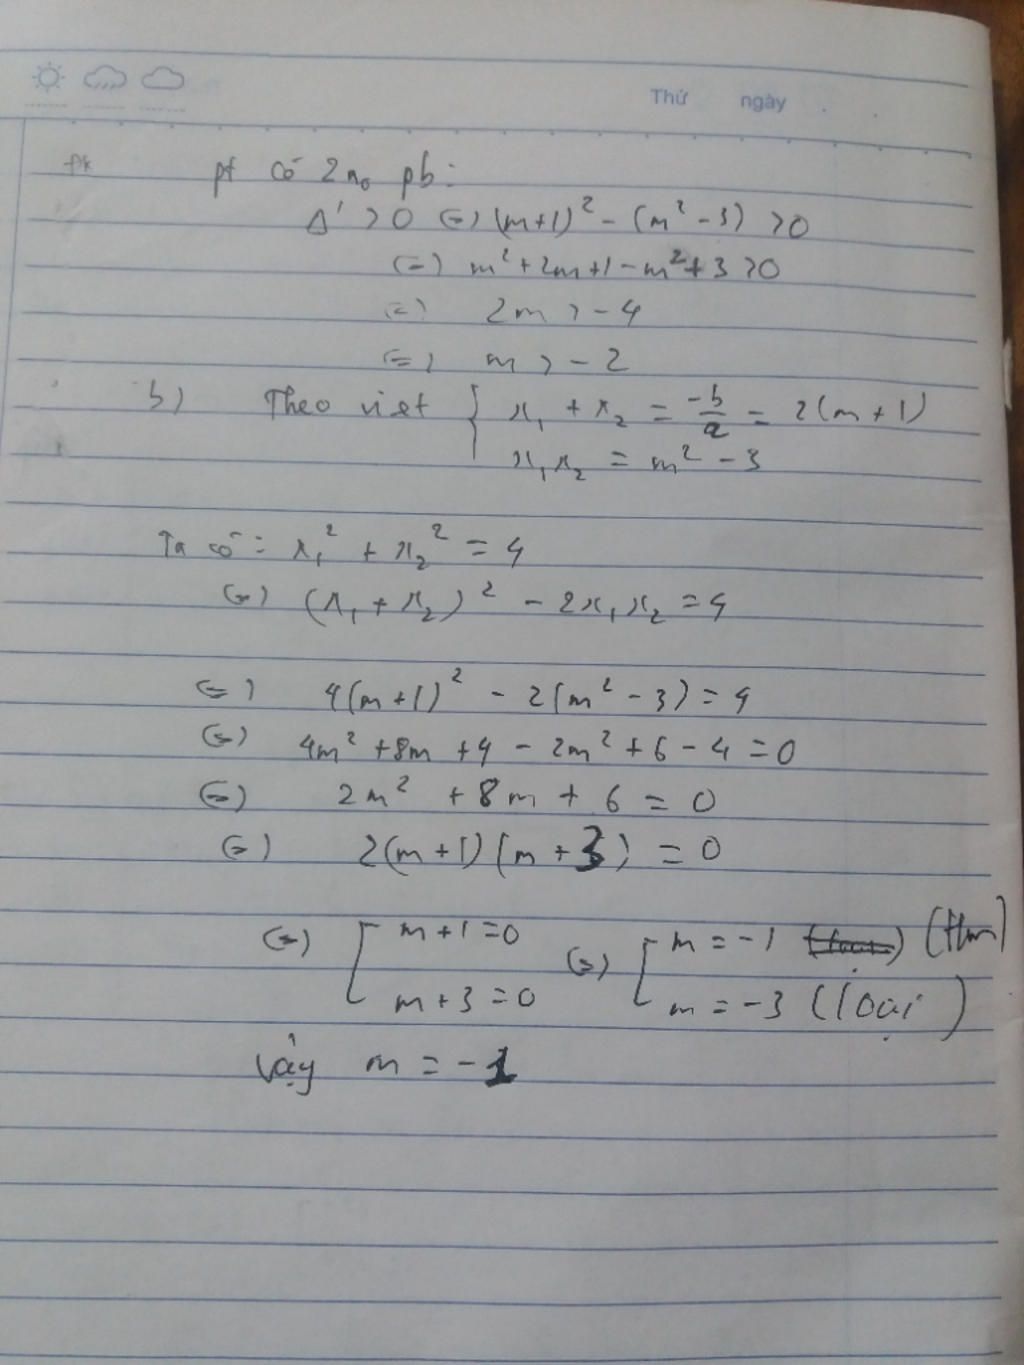 Thứ ngày
đk pt có 2 no pb:
Δ' > 0 (=) (m+1)² - (m² - 3) > 0
(=) m² + 2m + 1 - m² + 3 > 0
(=) 2m > - 4
(=) m > - 2
b) Theo viet { x₁ + x₂ = -b/a = 2(m + 1)
x₁x₂ = m² - 3
Ta có: x₁² + x₂² = 4
(=) (x₁ + x₂)² - 2x₁x₂ = 4
(=) 4(m+1)² - 2(m² - 3) = 4
(=) 4m² + 8m + 4 - 2m² + 6 - 4 = 0
(=) 2m² + 8m + 6 = 0
(=) 2(m+1)(m+3) = 0
(=) [ m + 1 = 0 (=) [ m = -1 (t/m)
m + 3 = 0 m = -3 (loại)
Vậy m = -1